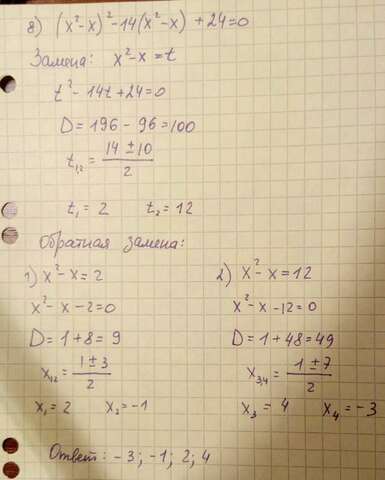 8) (x²-x)²-14(x²-x) +24=0
Замена: x²-x=t
t²-14t+24=0
D=196-96=100
t₁,₂ = (14±10)/2
t₁=2 t₂=12
Обратная замена:
1) x²-x=2
x²-x-2=0
D=1+8=9
x₁,₂ = (1±3)/2
x₁=2 x₂=-1
2) x²-x=12
x²-x-12=0
D=1+48=49
x₃,₄ = (1±7)/2
x₃=4 x₄=-3
Ответ: -3; -1; 2; 4